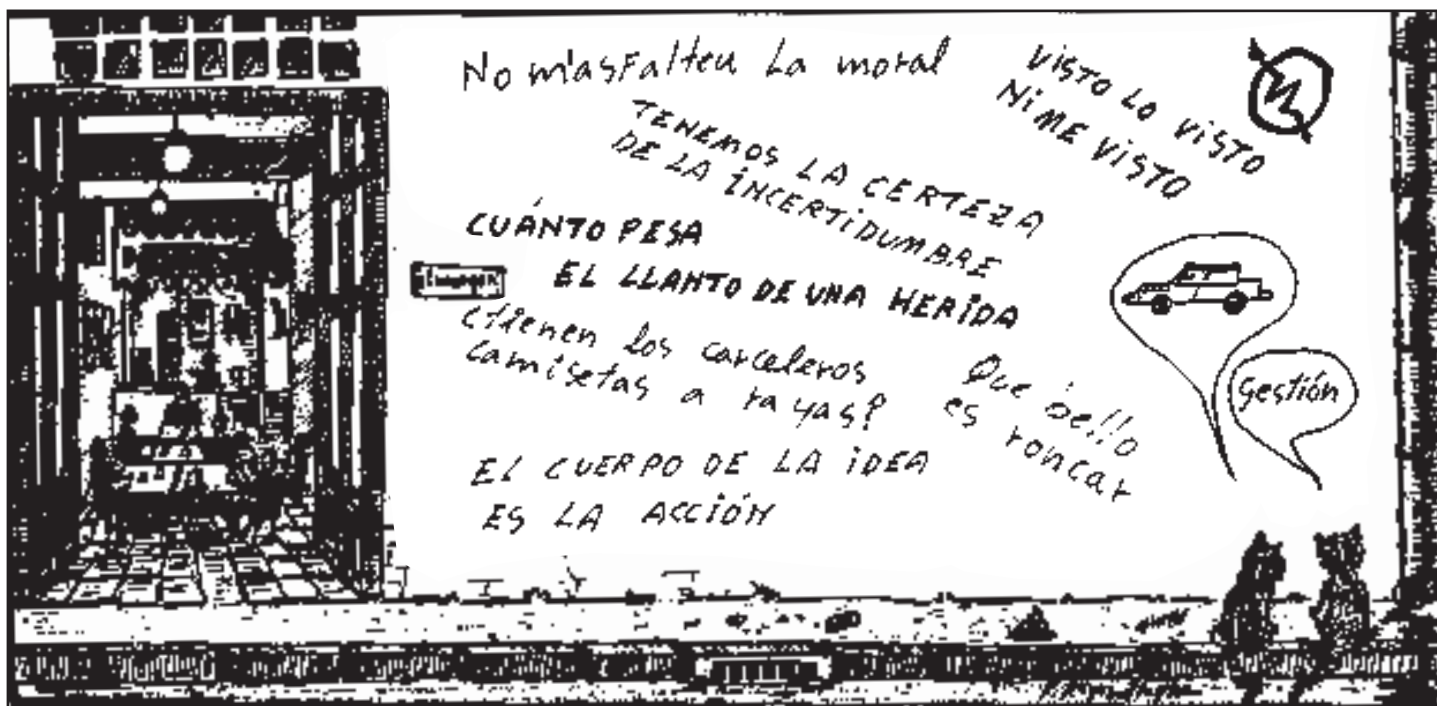 No m'asFalteu La moral
VISTO LO VISTO
NI ME VISTO
TENEMOS LA CERTEZA
DE LA INCERTIDUMBRE
CUÁNTO PESA
EL LLANTO DE UNA HERIDA
¿tienen los carceleros
camisetas a rayas?
Que bello
es roncar
gestión
EL CUERPO DE LA IDEA
ES LA ACCIÓN